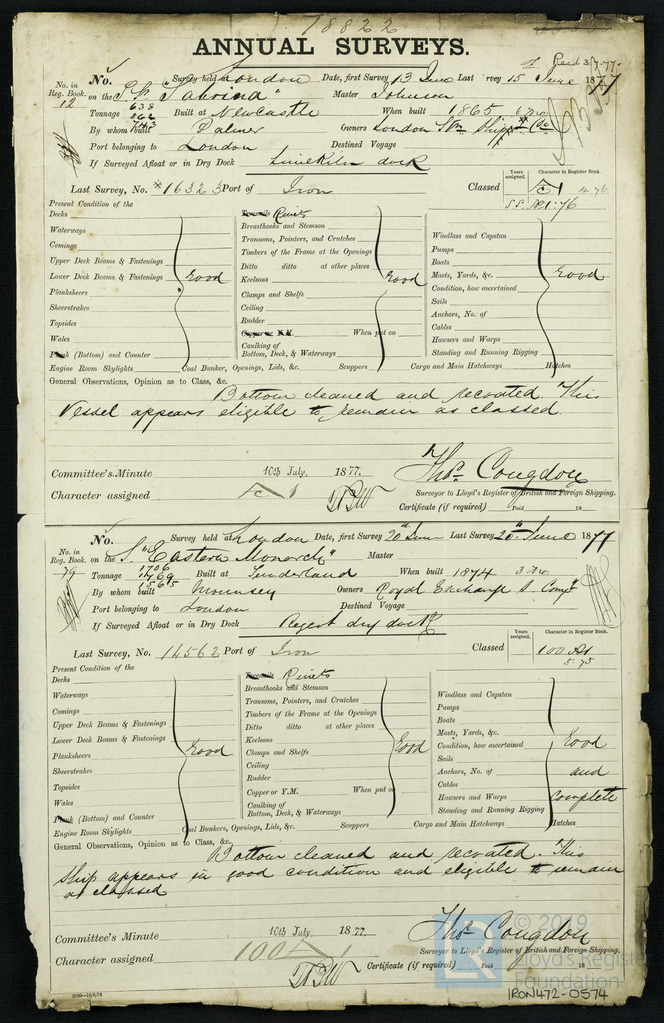 18822
ANNUAL SURVEYS.
Recd 3/7-77-
No. Survey held at London Date, first Survey 13 June Last Survey 15 June 1877
No. in Reg. Book.
12 on the "Sabrina" Master Johnson
Tonnage 638 862 743 Built at Newcastle When built 1865
By whom built Palmer Owners London Stm Shippg Co
Port belonging to London Destined Voyage
If Surveyed Afloat or in Dry Dock Limekiln dock
Last Survey, No. 16323 Port of Iron Classed Years assigned. Character in Register Book.
4.76
S.S. No. 1-76
Present Condition of the
Decks
Waterways
Comings
Upper Deck Beams & Fastenings
Lower Deck Beams & Fastenings Good
Planksheers
Sheerstrakes
Topsides
Wales
Plank (Bottom) and Counter
Rivets
Breasthooks and Stemson
Transoms, Pointers, and Crutches
Timbers of the Frame at the Openings
Ditto ditto at other places
Keelsons Good
Clamps and Shelfs
Ceiling
Rudder
Copper or Y.M. When put on
Caulking of Bottom, Deck, & Waterways
Windlass and Capstan
Pumps
Boats
Masts, Yards, &c. Good
Condition, how ascertained
Sails
Anchors, No. of
Cables
Hawsers and Warps
Standing and Running Rigging
Engine Room Skylights Coal Bunkers, Openings, Lids, &c. Scuppers Cargo and Main Hatchways Hatches
General Observations, Opinion as to Class, &c.
Bottom cleaned and recoated. This
Vessel appears eligible to remain as classed.
Committee's Minute 10th July, 1877.
Character assigned
Thos. Congdon
Surveyor to Lloyd's Register of British and Foreign Shipping.
Certificate (if required) Paid 18
No. Survey held at London Date, first Survey 20th June Last Survey 20th June 1877
No. in Reg. Book.
79 on the S. "Eastern Monarch" Master
Tonnage 1706 1769 1565 Built at Sunderland When built 1874 3 Mo.
By whom built Mounsey Owners Royal Exchange S. Compy
Port belonging to London Destined Voyage
If Surveyed Afloat or in Dry Dock Regent dry dock
Last Survey, No. 14562 Port of Iron Classed Years assigned. Character in Register Book.
100 A1
5.75
Present Condition of the
Decks
Waterways
Comings
Upper Deck Beams & Fastenings
Lower Deck Beams & Fastenings
Planksheers Good
Sheerstrakes
Topsides
Wales
Plank (Bottom) and Counter
Rivets
Breasthooks and Stemson
Transoms, Pointers, and Crutches
Timbers of the Frame at the Openings
Ditto ditto at other places
Keelsons
Clamps and Shelfs Good
Ceiling
Rudder
Copper or Y.M. When put on
Caulking of Bottom, Deck, & Waterways
Windlass and Capstan
Pumps
Boats
Masts, Yards, &c.
Condition, how ascertained Good
Sails
Anchors, No. of and
Cables
Hawsers and Warps Complete
Standing and Running Rigging
Engine Room Skylights Coal Bunkers, Openings, Lids, &c. Scuppers Cargo and Main Hatchways Hatches
General Observations, Opinion as to Class, &c.
Bottom cleaned and recoated. This
Ship appears in good condition and eligible to remain
as classed
Committee's Minute 10th July, 1877.
Character assigned 100 A1
Thos. Congdon
Surveyor to Lloyd's Register of British and Foreign Shipping.
Certificate (if required) Paid 18
© 2019
Lloyd's Register
Foundation
IRON472-0574